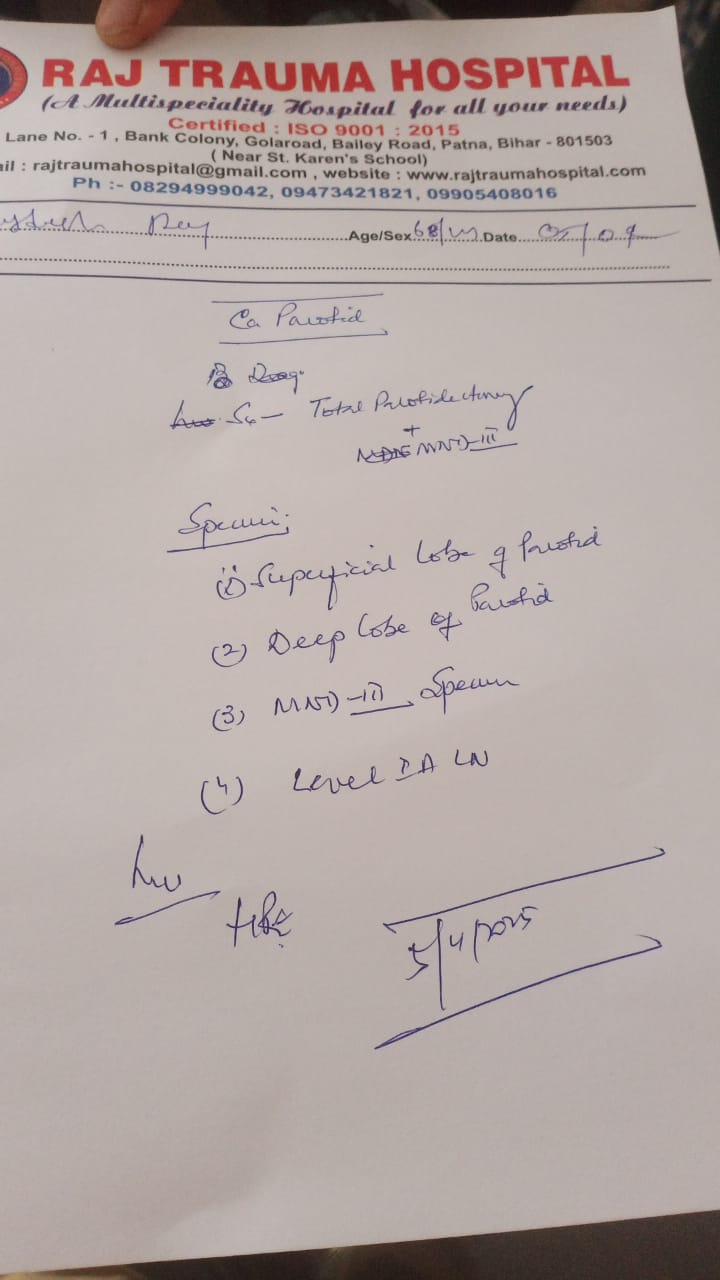 RAJ TRAUMA HOSPITAL
(A Multispeciality Hospital for all your needs)
Certified : ISO 9001 : 2015
Lane No. - 1 , Bank Colony, Golaroad, Bailey Road, Patna, Bihar - 801503
( Near St. Karen's School)
il : rajtraumahospital@gmail.com , website : www.rajtraumahospital.com
Ph :- 08294999042, 09473421821, 09905408016
Age/Sex 68/M Date
Ca Parotid
Sx - Total Parotidectomy
+
MND-III
Specimen:
(1) Superficial lobe of Parotid
(2) Deep lobe of Parotid
(3) MND-III Specimen
(4) Level IA LN
HPE
5/4/2025